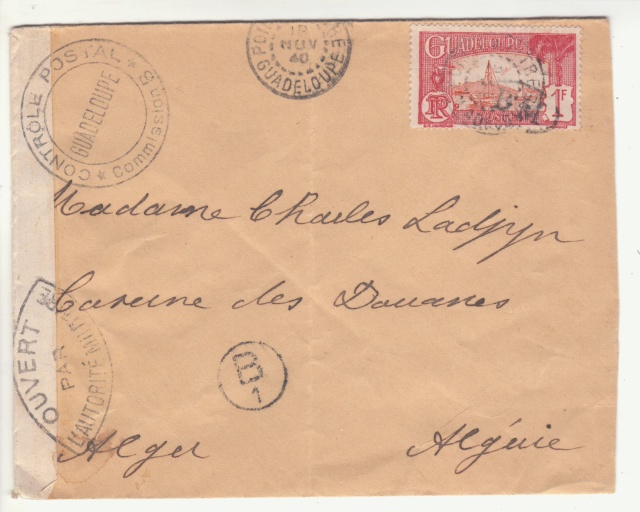 CONTRÔLE POSTAL
Commission
GUADELOUPE
NOV
40
GUADELOUPE
GUADELOUPE
RF
1F
Madame Charles
Caserne des Douanes
OUVERT
PAR
L'AUTORITÉ
B
1
Alger Algérie